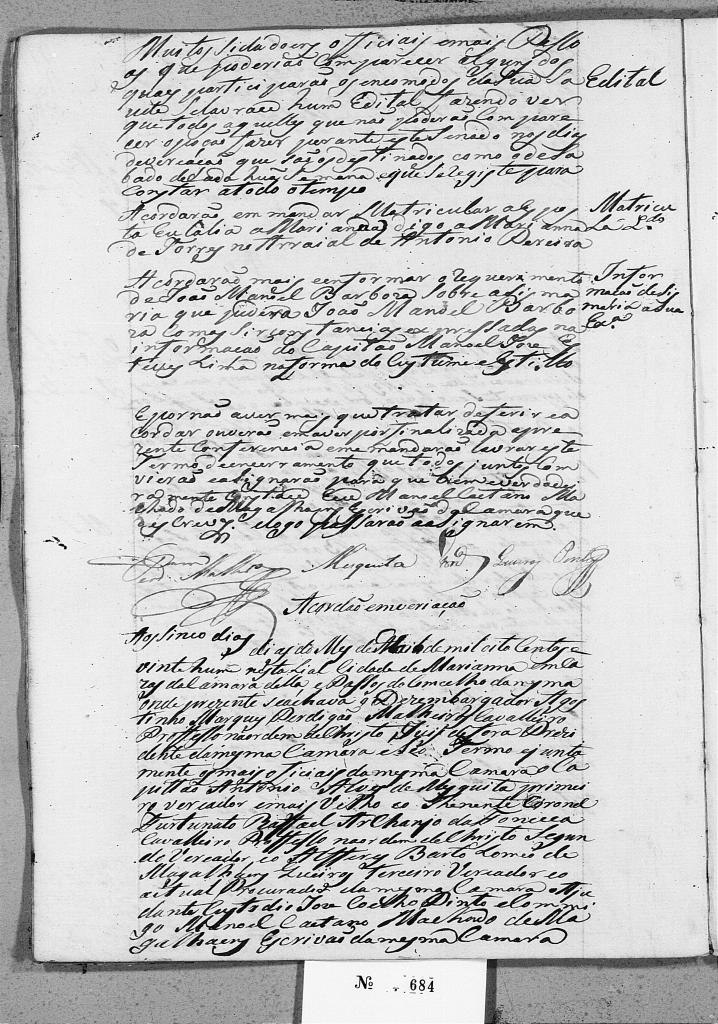 Muitos Sidadoens officiais emais Pesso
as que poderião Comparecer alguns dos
quaes participarão os encomodos da sua Sa Edital
ude Selavrace hum Edital fazendo ver
que todos aquelles que não poderão Compare
cer o posão fazer perante este Senado nos dias
deveriação que são os destinados como o de Sa
bado de Cada huã Semana eque Seregiste para
Constar atodo otempo
Acordarão em mandar Matricular a Expos Matricu
ta Eulalia a Marianna digo a Marianna
de Torres no Arraial de Antonio Pereira
Acordarão mais em enformar o Requerimento Infor
de João Manoel Barboza Sobre a Sisma mação de Sis
ria que pedira João Manoel Barbo maria a Sua
za Com as Sirconstancias expressadas na Exª
informação do Capitão Manoel Jose Es
teves Lima na forma do Custume e Estillo
E por não aver mais que tratar deferir e a
Cordar ouverão em aver por finalizada apre
zente Conferencia e me mandarão lavrar este
Termo de encerramento que todos juntos Com
vierão e asignarão para que bem e verdadei
ramente Conste Eu Manoel Caetano Ma
chado de Magalhaens Escrivão da Camara que
escrevy e logo passarão a asignarem
Malhrº Mesquita Queiroz Pinto
Acordão em veriação
Aos sinco dias do Mes de Maio de mil oito Centos e
vinte hum nesta Lial Cidade de Marianna em Ca
zas da Camara della, e Passos do Concelho da mesma
onde prezente se achava o Dezembargador Agos
tinho Marques Perdigão Malheiro Cavalleiro
Professo na ordem de Christo Juis de Fora Prezi
dente da mesma Camara e Seo Termo e junta
mente os mais officiais da mesma Camara o Ca
pittão Antonio Alves de Mesquita primei
ro vereador e mais Velho e o Thenente Coronel
Furtunato Raffael Archanjo da Fonceca
Cavalleiro Professo na ordem de Christo Segun
do Vereador, e o Alfferes Bartolomeo de
Magalhaens Queiroz Terceiro Vereador e o
actual Procurador da mesma Camara o Aju
dante Custodio Jose Coelho Pinto e Commi
go Manoel Caetano Machado de Ma
galhaens Escrivão da mesma Camara
Nº 684